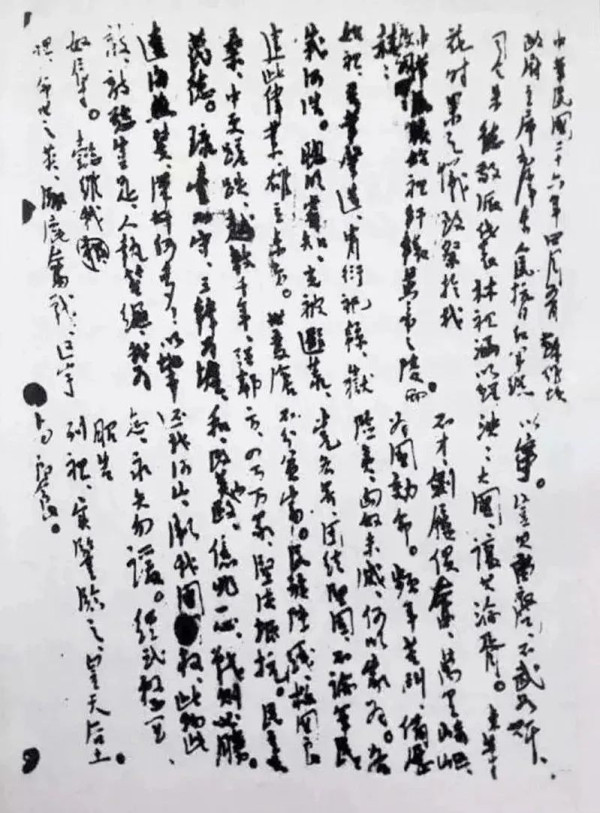 中華民國二十六年四月五日
政府主席毛澤東人民抗日紅軍總
司令朱德敬派代表林祖涵以鮮
花時果之儀致祭於我
中華民族始祖軒轅黃帝之陵而
始祖、吾華肇造、胄衍祀綿、嶽
峨河浩。聰明睿知、光被遐荒、
建此偉業、雄立東方。世變滄
桑、中更蹉跌、越數千年、強鄰
蔑德。琉臺不守、三韓為墟、
遼海燕冀、漢奸何多、以地事
敵、敵欲豈足、人執笞繩、我為
奴辱。懿維我
祖、命世之英、涿鹿奮戰、區宇
以寧。豈其苗裔、不武如斯、
泱泱大國、讓其淪胥。東等
不才、劍屨俱奮、萬里崎嶇、
為國效命。頻年苦鬥、備歷
險夷、匈奴未滅、何以家為。各
黨各界、團結堅固、不論軍民
不分貧富。民族陣綫、救國良
方、四万万眾、堅決抵抗。民主共
和、改革內政、億兆一心、戰則必勝。
還我河山、衛我國權、此物此
志、永矢勿諼。經武整軍、
昭告
列祖、實鑒臨之、皇天后土。
尚饗。